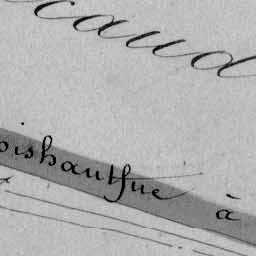 caud
oishauthue à